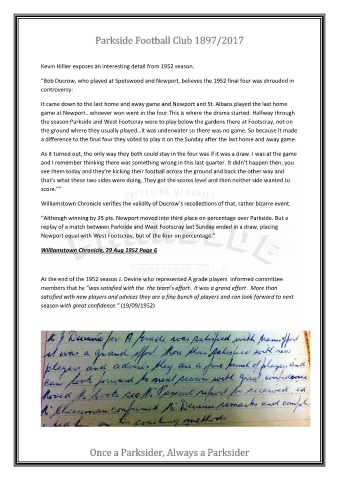 Parkside Football Club 1897/2017
Kevin Hillier exposes an interesting detail from 1952 season.
"Bob Ducrow, who played at Spotswood and Newport, believes the 1952 final four was shrouded in
controversy:
It came down to the last home and away game and Newport and St. Albans played the last home
game at Newport,..whoever won went in the four.This is where the drama started. Halfway through
the season Parkside and West Footscray were to play below the gardens there at Footscray, not on
the ground where they usually played...it was underwater so there was no game. So because it made
a difference to the final four they voted to play it on the Sunday after the last home and away game.
As it turned out, the only way they both could stay in the four was if it was a draw. I was at the game
and I remember thinking there was something wrong in this last quarter. It didn't happen then, you
see them today and they're kicking their football across the ground and back the other way and
that's what these two sides were doing. They got the scores level and then neither side wanted to
score.'"
Williamstown Chronicle verifies the validity of Ducrow's recollections of that, rather bizarre event.
"Although winning by 35 pts. Newport moved into third place on percentage over Parkside. But a
replay of a match between Parkside and West Footscray last Sunday ended in a draw, placing
Newport equal with West Footscray, but of the four on percentage."
Williamstown Chronicle, 29 Aug 1952 Page 6
At the end of the 1952 season J. Devine who represented A grade players informed committee
members that he "was satisfied with the the team's effort. It was a grand effort. More than
satisfied with new players and advices they are a fine bunch of players and can look forward to next
season with great confidence." (19/09/1952)
J Devine for A Grade was satisfied with teams effort
it was a grand effort. More than satisfied with new
players and advises they are a fine bunch of players and
can look forward to next season with great confidence
Moved Mr
report be received
Mr Chairman confirmed Mr Devines remarks and
on coaching methods
Once a Parksider, Always a Parksider